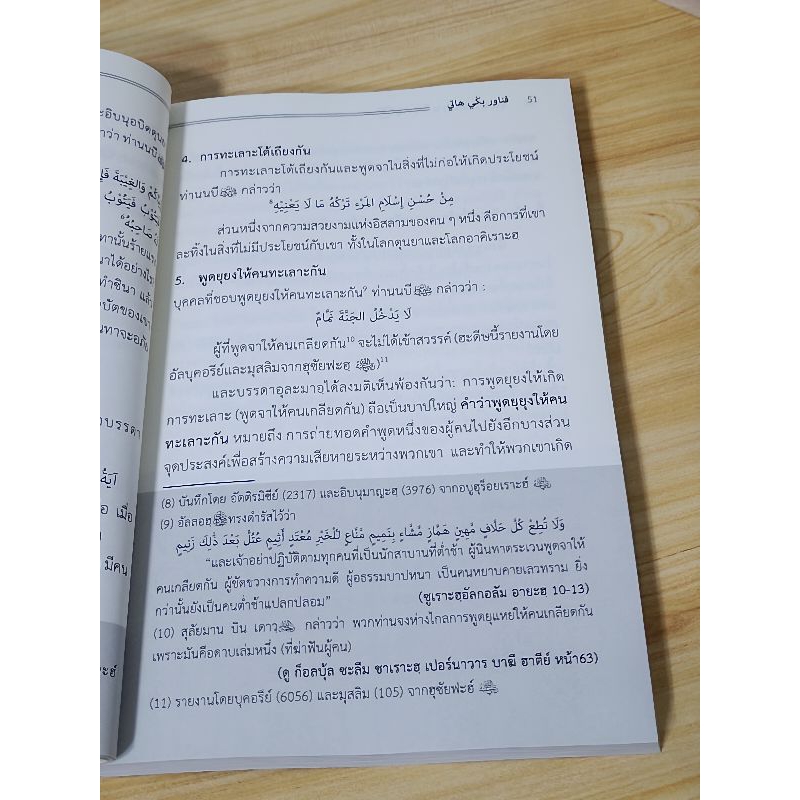 ะอิบนุอบิดดุนยา
ฆ่าว่า ท่านนบี
ทานั้นร้ายแรง
มาได้อย่างไร
ทำซินา แล้ว
อบรรดา
เมื่อ
มีคน
ฟناور بڬي هاتي 51
4. การทะเลาะโต้เถียงกัน
การทะเลาะโต้เถียงกันและพูดจาในสิ่งที่ไม่ก่อให้เกิดประโยชน์
ท่านนบีﷺ กล่าวว่า
مِنْ حُسْنِ إِسْلَامِ المَرْءِ تَرْكُهُ مَا لَا يَعْنِيْهِ⁸
ส่วนหนึ่งจากความสวยงามแห่งอิสลามของคน ๆ หนึ่ง คือการที่เขา
ละทิ้งในสิ่งที่ไม่มีประโยชน์กับเขา ทั้งในโลกดุนยาและโลกอาคิเราะฮ
5. พูดยุยงให้คนทะเลาะกัน
บุคคลที่ชอบพูดยุยงให้คนทะเลาะกัน⁹ ท่านนบีﷺ กล่าวว่า :
لَا يَدْخُلُ الجَنَّةَ نَمَّامٌ
ผู้ที่พูดจาให้คนเกลียดกัน¹⁰ จะไม่ได้เข้าสวรรค์ (ฮะดีษนี้รายงานโดย
อัลบุคอรีย์และมุสลิมจากฮุซัยฟะฮฺ )¹¹
และบรรดาอุละมาอได้ลงมติเห็นพ้องกันว่า: การพูดยุยงให้เกิด
การทะเลาะ (พูดจาให้คนเกลียดกัน) ถือเป็นบาปใหญ่ คำว่าพูดยุยุงให้คน
ทะเลาะกัน หมายถึง การถ่ายทอดคำพูดหนึ่งของผู้คนไปยังอีกบางส่วน
จุดประสงค์เพื่อสร้างความเสียหายระหว่างพวกเขา และทำให้พวกเขาเกิด
(8) บันทึกโดย อัตติรมิซีย์ (2317) และอิบนุมาญะฮฺ (3976) จากอบูฮุร็อยเราะฮ์
(9) อัลลอฮฺทรงดำรัสไว้ว่า
وَلَا تُطِعْ كُلَّ حَلَّافٍ مَّهِينٍ هَمَّازٍ مَّشَّاءٍ بِنَمِيمٍ مَّنَّاعٍ لِّلْخَيْرِ مُعْتَدٍ أَثِيمٍ عُتُلٍّ بَعْدَ ذَٰلِكَ زَنِيمٍ
“และเจ้าอย่าปฏิบัติตามทุกคนที่เป็นนักสาบานที่ต่ำช้า ผู้นินทาตระเวนพูดจาให้
คนเกลียดกัน ผู้ขัดขวางการทำความดี ผู้อธรรมบาปหนา เป็นคนหยาบคายเลวทราม ยิ่ง
กว่านั้นยังเป็นคนต่ำช้าแปลกปลอม” (ซูเราะฮฺอัลกอลัม อายะฮฺ 10-13)
(10) สุลัยมาน บิน เดาวู กล่าวว่า พวกท่านจงห่างไกลการพูดยุแหย่ให้คนเกลียดกัน
เพราะมันคือดาบเล่มหนึ่ง (ที่ฆ่าฟันผู้คน)
(ดู ก็อลบุ้ล ซะลีม ซาเราะฮฺ เปอร์นาวาร บาฆี ฮาตีย์ หน้า63)
(11) รายงานโดยบุคอรีย์ (6056) และมุสลิม (105) จากฮุซัยฟะฮ์